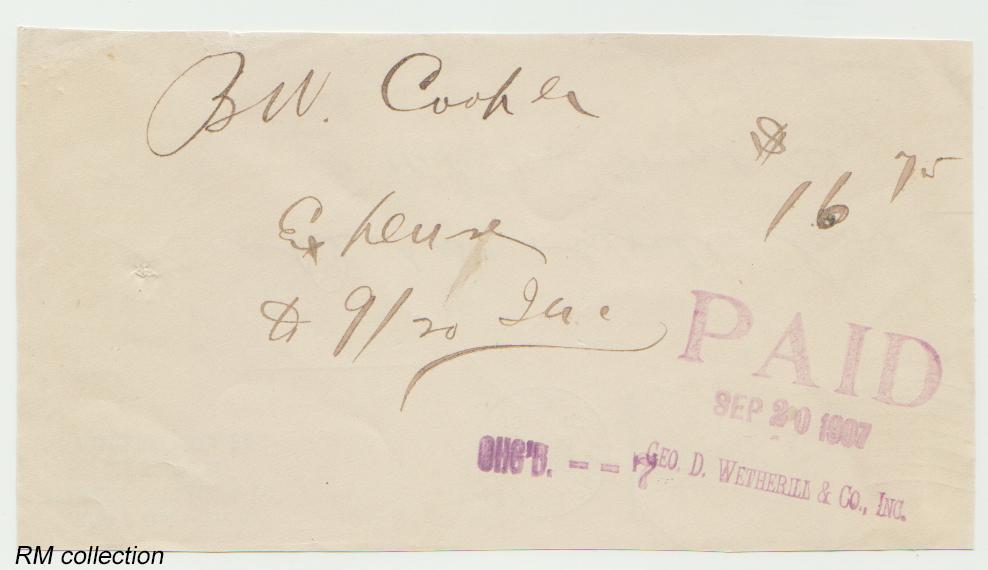 B W. Cooper
$ 16 75
Expense
to 9/20 Inc
PAID
SEP 20 1907
GEO. D. WETHERILL & CO., INC.
RM collection